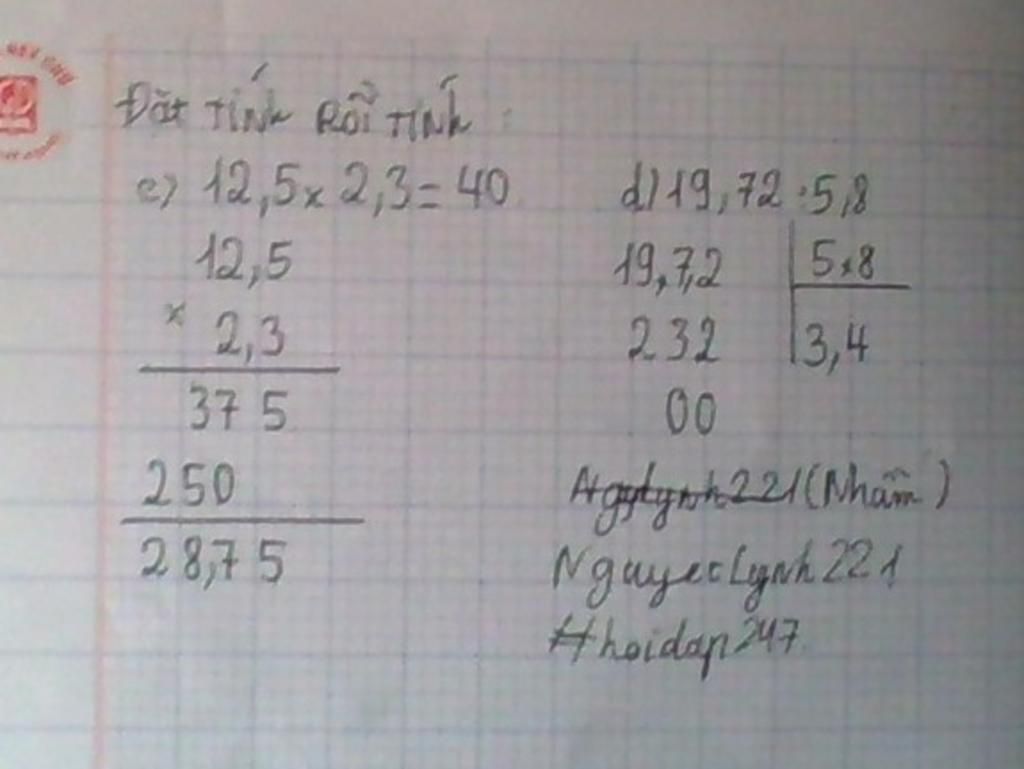 Đặt tính rồi tính:
c) 12,5 x 2,3 = 40
12,5
x 2,3
375
250
28,75
d) 19,72 : 5,8
19,7,2 5,8
232 3,4
00
(Nhầm)
NguyecLynh221
#hoidap247